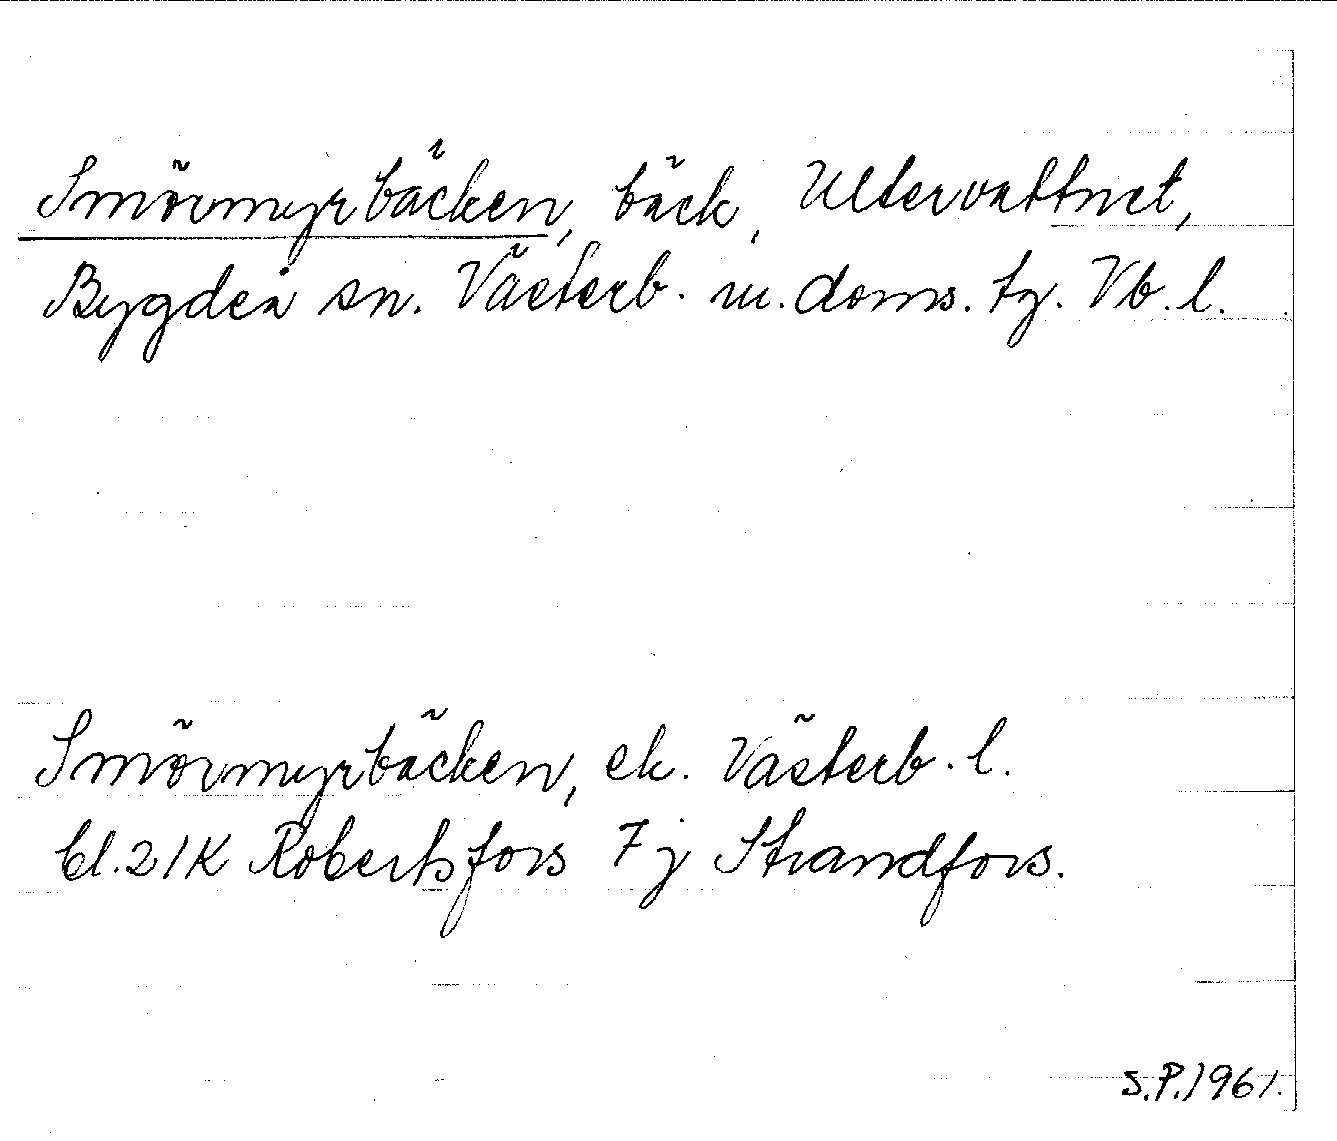 Smörmyrbäcken, bäck, Ultervattnet,
Bygdeå sn. Västerb. m. doms. tg. Vb. l.
Smörmyrbäcken, ek. Västerb. l.
bl. 21K Robertsfors 7j Strandfors.
S.P.1961.